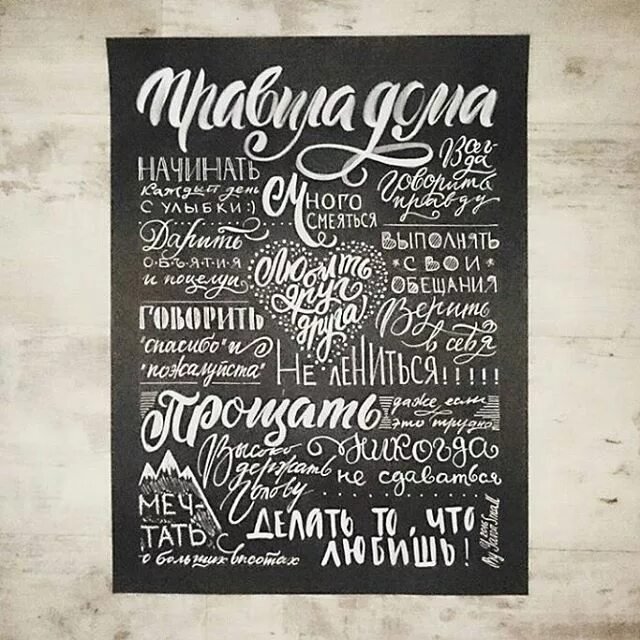 Правила дома
НАЧИНАТЬ
каждый день
С УЛЫБКИ:)
Много
смеяться
Всег-
да
говорить
правду
Дарить
ОБЪЯТИЯ
и поцелуи
Любить
друг
друга!
ВЫПОЛНЯТЬ
*СВОИ*
ОБЕЩАНИЯ
ГОВОРИТЬ
"спасибо" и
"пожалуйста"
Верить
в себя
Не лениться!!!!!
Прощать
даже если
это трудно
Высоко
держать
голову
Никогда
не сдаваться
МЕЧ-
ТАТЬ
о больших высотах
ДЕЛАТЬ ТО, ЧТО
ЛЮБИШЬ!
2015